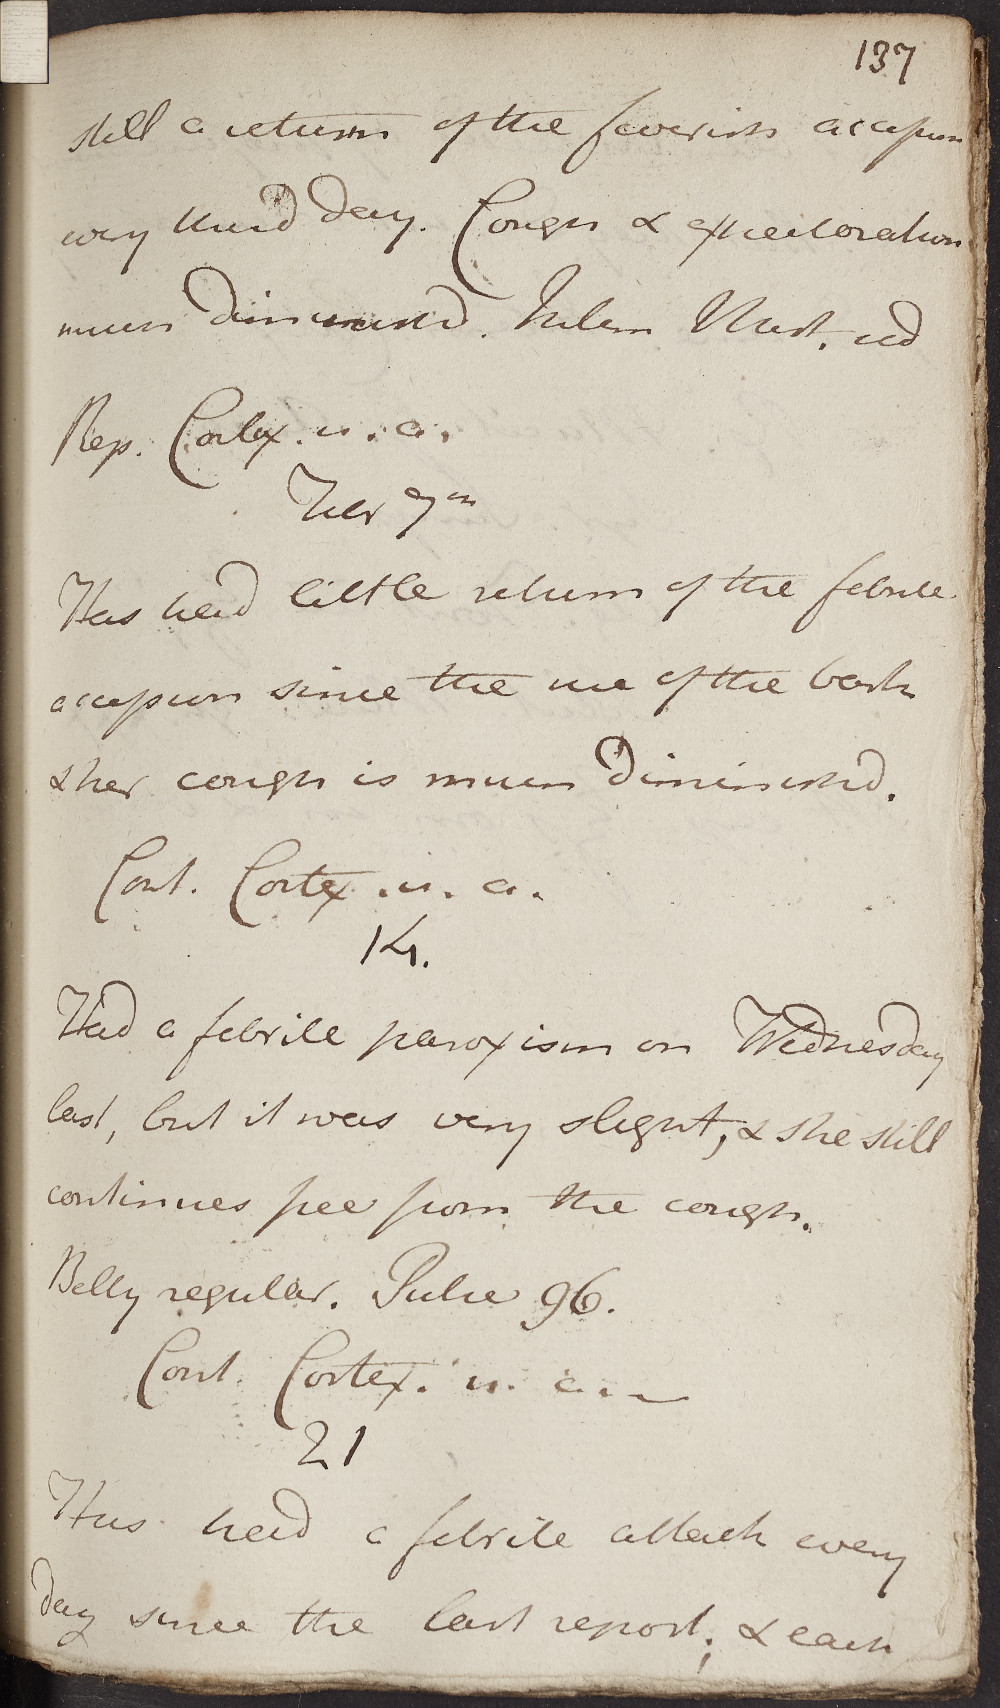 137
still a return of the feverish accession
every third day. Cough & expectoration
much diminished. Julem Must. ud
Rep. Cortex. u. a.
Febr 7th
Has had little return of the febrile
accession since the use of the bark
& her cough is much diminishd.
Cont. Cortex. u. a.
14.
Had a febrile paroxism on Wednesday
last, but it was very slight, & she still
continues free from the cough.
Belly regular. Pulse 96.
Cont. Cortex. u. a.
21
Has had a febrile attack every
day since the last report; & each